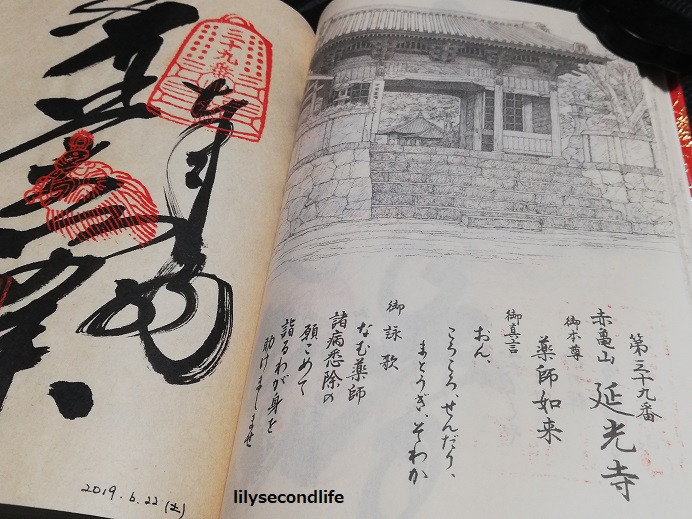 第三十九番
赤亀山 延光寺
御本尊
薬師如来
御真言
おん、
ころころ、せんだり、
まとうぎ、そわか
御詠歌
なむ薬師
諸病悉除の
願こめて
詣るわが身を
助けましませ
三十九番
2019.6.22(土)
lilysecondlife